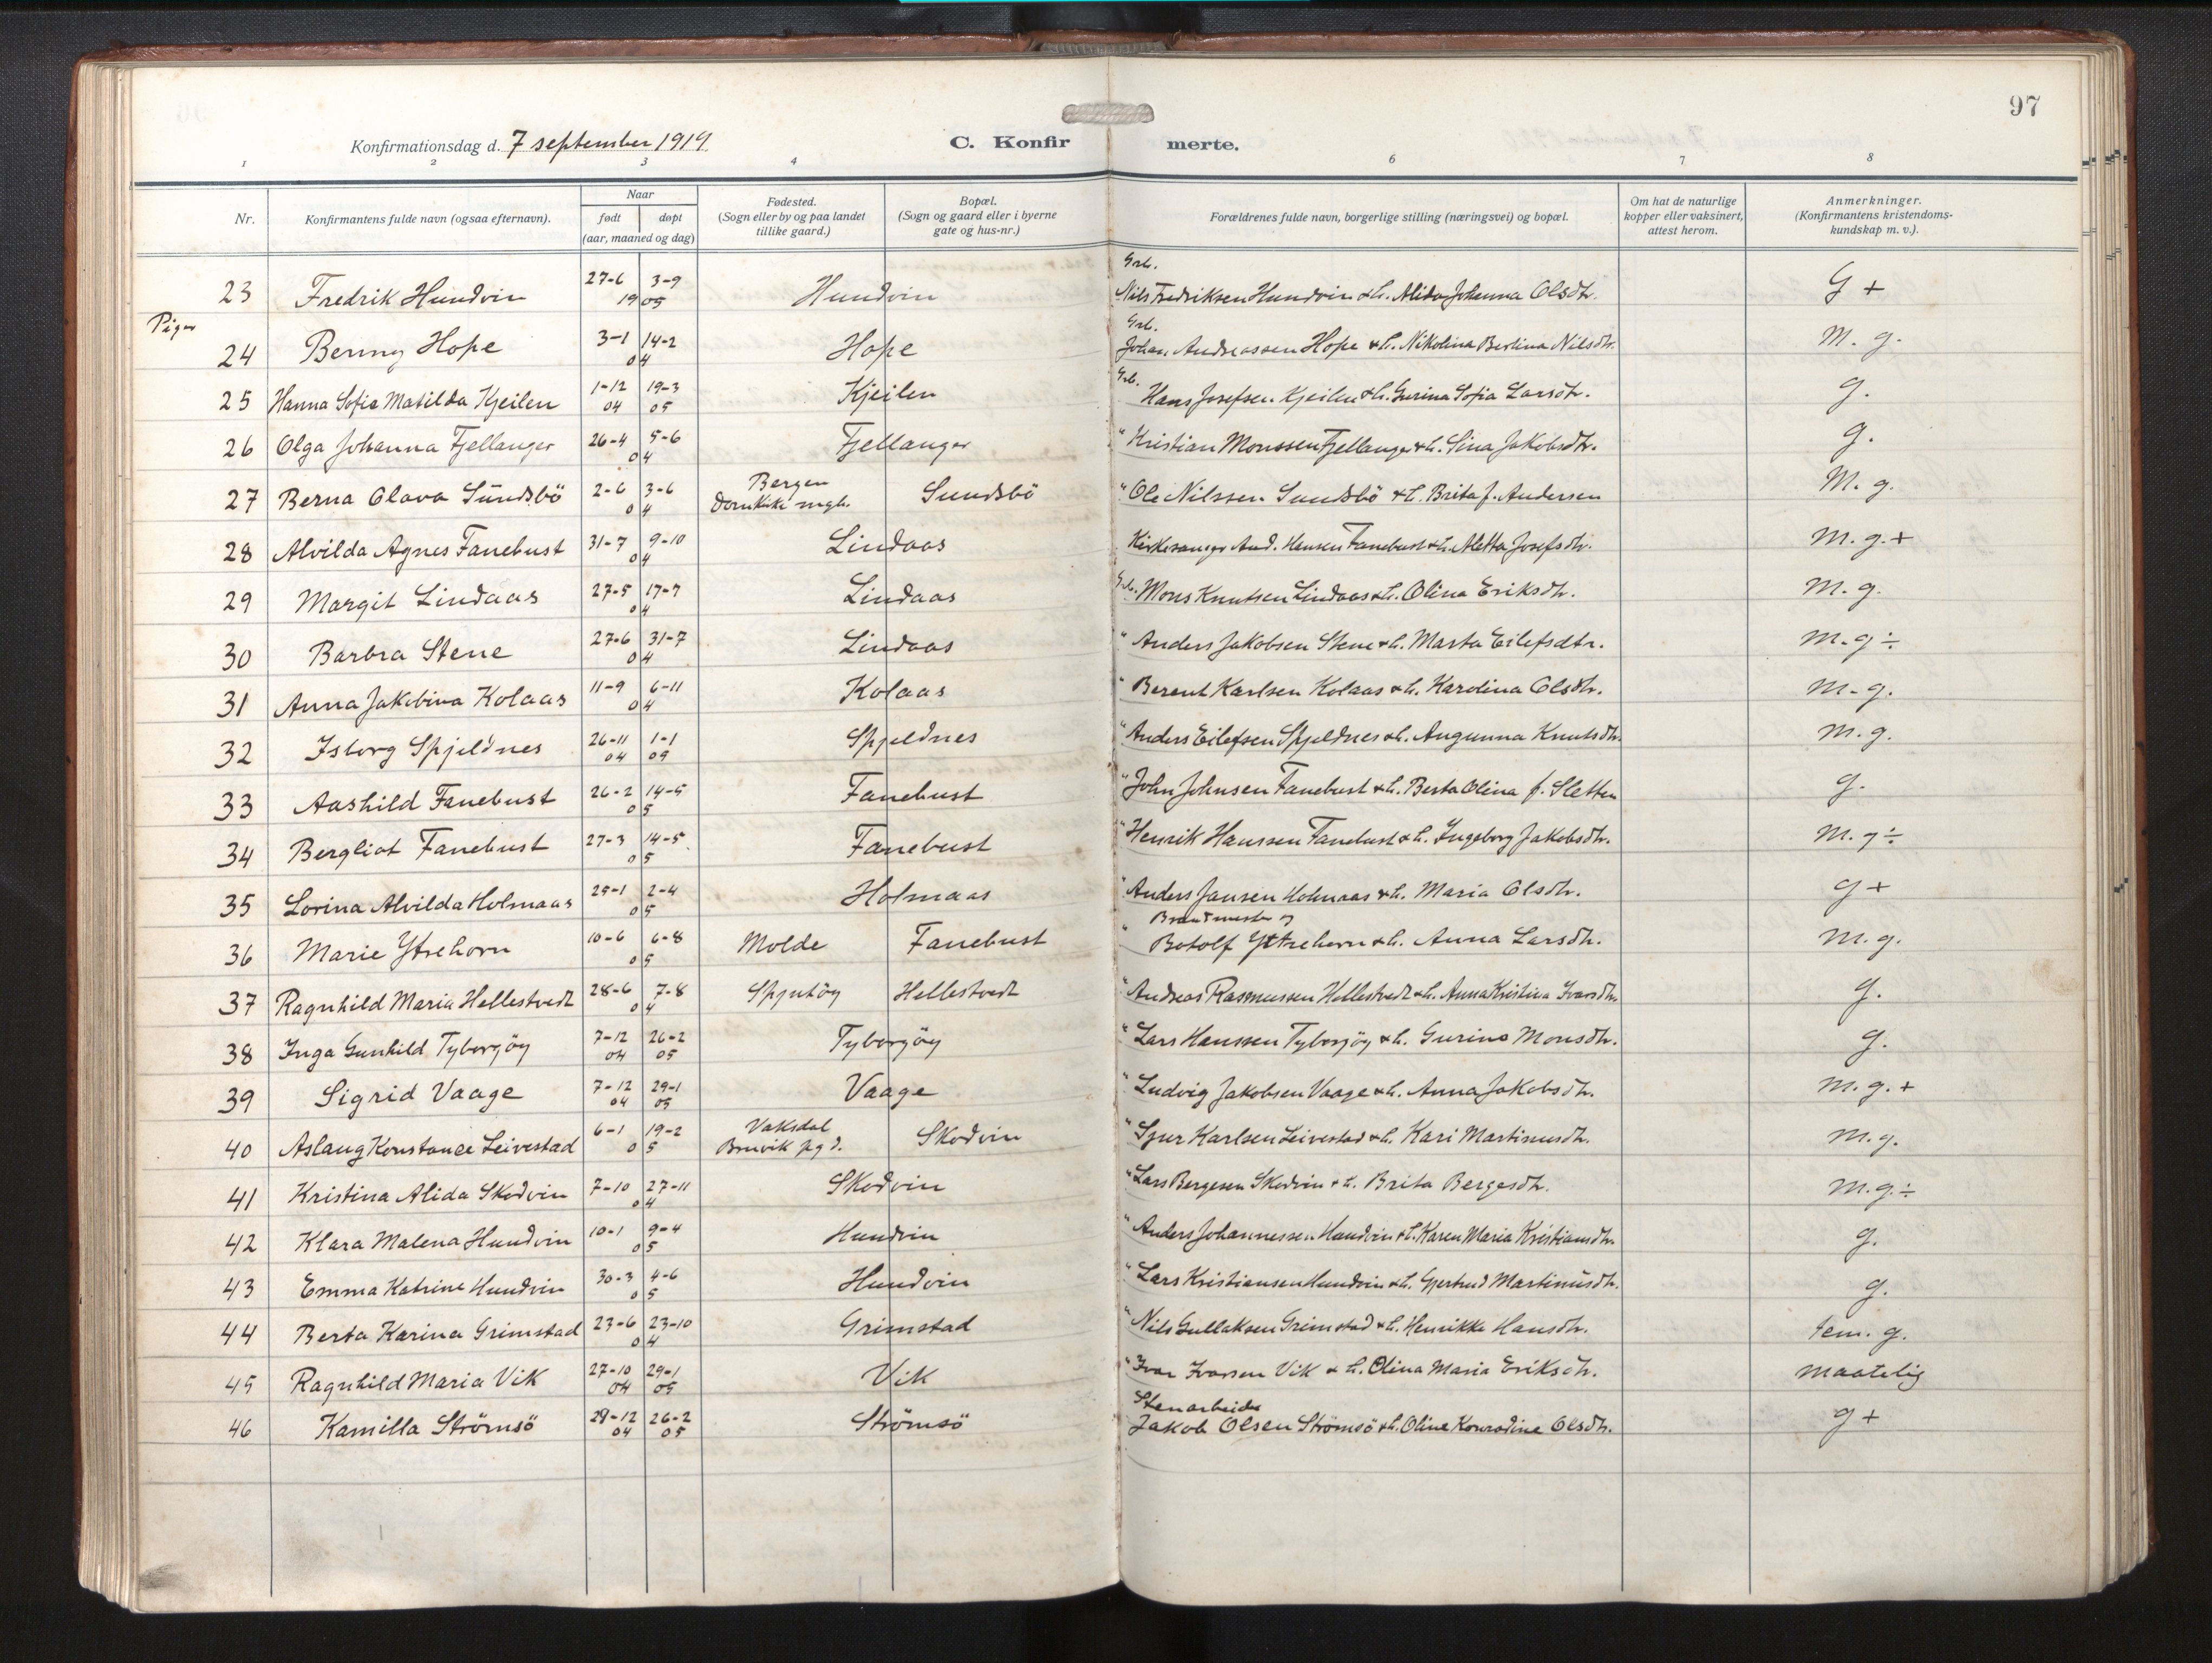 97
Konfirmationsdag d. 7 september 1919
C. Konfirmerte.
1 2 3 4 6 7 8
Nr.
Konfirmantens fulde navn (ogsaa efternavn).
Naar
født døpt
(aar, maaned og dag)
Fødested.
(Sogn eller by og paa landet
tillike gaard.)
Bopæl.
(Sogn og gaard eller i byerne
gate og hus-nr.)
Forældrenes fulde navn, borgerlige stilling (næringsvei) og bopæl.
Om hat de naturlige
kopper eller vaksinert,
attest herom.
Anmerkninger.
(Konfirmantens kristendoms-
kundskap m. v.).
Grb.
23 Fredrik Hundvin 27-6 3-9 1905 Hundvin Nils Fredriksen Hundvin & h. Alida Johanna Olsdtr. G +
Piger
Grb.
24 Benny Hope 3-1 14-2 04 Hope Johan Andreassen Hope & h. Nikolina Berlina Nilsdtr. M. g.
Grb.
25 Hanna Sofie Matilda Kjeilen 1-12 04 19-3 05 Kjeilen Hans Josefsen Kjeilen & h. Gurina Sofia Larsdtr. g.
26 Olga Johanna Fjellanger 26-4 5-6 04 Fjellanger " Kristian Monssen Fjellanger & h. Sina Jakobsdtr. g.
27 Berna Olava Sundsbö 2-6 3-6 04 Bergen Domkirke mgh. Sundsbö " Ole Nilssen Sundsbö & h. Brita f. Andersen M. g.
28 Alvilda Agnes Fanebust 31-7 9-10 04 Lindaas Kirkesanger And. Hansen Fanebust & h. Aletta Josefsdtr. M. g. +
29 Margit Lindaas 27-5 17-7 04 Lindaas Grb. Mons Knutsen Lindaas & h. Olina Eriksdtr. M. g.
30 Barbra Stene 27-6 31-7 04 Lindaas " Anders Jakobsen Stene & h. Marta Eilefsdtr. M. g ÷
31 Anna Jakobina Kolaas 11-9 6-11 04 Kolaas " Berent Karlsen Kolaas & h. Karolina Olsdtr. M. g.
32 Isborg Spjeldnes 26-11 04 1-1 05 Spjeldnes " Anders Eilefsen Spjeldnes & h. Augunna Knutsdtr. M. g.
33 Aashild Fanebust 26-2 14-5 05 Fanebust " John Johnsen Fanebust & h. Berta Olina f. Sletten g.
34 Bergliot Fanebust 27-3 14-5 05 Fanebust " Henrik Hanssen Fanebust & h. Ingeborg Jakobsdtr. M. g ÷
35 Lovina Alvilda Holmaas 29-1 2-4 05 Holmaas " Anders Jansen Holmaas & h. Maria Olsdtr. g +
36 Marie Ytrehorn 10-6 6-8 05 Molde Fanebust " Botolf Yttrehorn & h. Anna Larsdtr. M. g.
37 Ragnhild Maria Hellestvedt 28-6 7-8 04 Spjutöy Hellestvedt " Andreas Rasmussen Hellestvedt & h. Anna Kristina Ivarsdtr. g.
38 Inga Gunhild Tyborgöy 7-12 04 26-2 05 Tyborgöy " Lars Hanssen Tyborgöy & h. Gurine Monsdtr. g.
39 Sigrid Vaage 7-12 04 29-1 05 Vaage " Ludvig Jakobsen Vaage & h. Anna Jakobsdtr. M. g. +
40 Aslaug Konstance Leivestad 6-1 19-2 05 Vaksdal Bruvik pgd. Skodvin " Sjur Karlsen Leivestad & h. Kari Martinusdtr. M. g.
41 Kristina Alida Skodvin 7-10 27-11 04 Skodvin " Lars Bergesen Skodvin & h. Brita Bergesdtr. M. g. ÷
42 Klara Malena Hundvin 10-1 9-4 05 Hundvin " Anders Johannessen Hundvin & h. Karen Maria Kristiansdtr. g.
43 Emma Katrine Hundvin 30-3 4-6 05 Hundvin " Lars Kristiansen Hundvin & h. Gjertrud Martinusdtr. g.
44 Berta Karina Grimstad 23-6 23-10 04 Grimstad " Nils Gullaksen Grimstad & h. Henrikke Hansdtr. tem. g.
45 Ragnhild Maria Vik 27-10 04 29-1 05 Vik " Ivar Ivarsen Vik & h. Olina Maria Eriksdtr. maatelig
Stenarbeider
46 Kamilla Strömsö 29-12 04 26-2 05 Strömsö Jakob Olsen Strömsö & h. Oline Konradine Olsdtr. g +